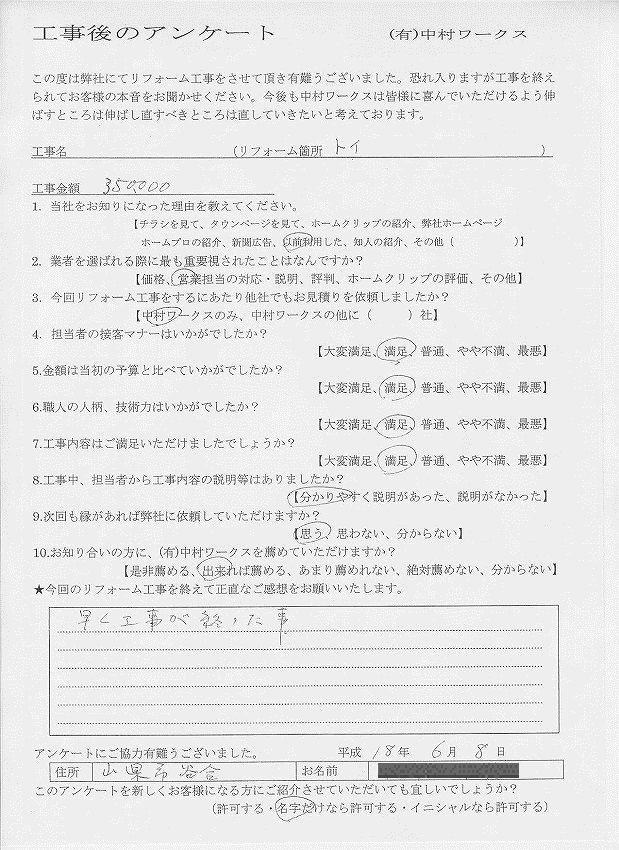 工事後のアンケート (有)中村ワークス
この度は弊社にてリフォーム工事をさせて頂き有難うございました。恐れ入りますが工事を終え
られてお客様の本音をお聞かせください。今後も中村ワークスは皆様に喜んでいただけるよう伸
ばすところは伸ばし直すべきところは直していきたいと考えております。
工事名 (リフォーム箇所 トイ )
工事金額 350,000
1. 当社をお知りになった理由を教えてください。
【チラシを見て、タウンページを見て、ホームクリップの紹介、弊社ホームページ
ホームプロの紹介、新聞広告、以前利用した、知人の紹介、その他( )】
2. 業者を選ばれる際に最も重要視されたことはなんですか?
【価格、営業担当の対応・説明、評判、ホームクリップの評価、その他】
3. 今回リフォーム工事をするにあたり他社でもお見積りを依頼しましたか?
【中村ワークスのみ、中村ワークスの他に( )社】
4. 担当者の接客マナーはいかがでしたか?
【大変満足、満足、普通、やや不満、最悪】
5.金額は当初の予算と比べていかがでしたか?
【大変満足、満足、普通、やや不満、最悪】
6.職人の人柄、技術力はいかがでしたか?
【大変満足、満足、普通、やや不満、最悪】
7.工事内容はご満足いただけましたでしょうか?
【大変満足、満足、普通、やや不満、最悪】
8.工事中、担当者から工事内容の説明等はありましたか?
【分かりやすく説明があった、説明がなかった】
9.次回も縁があれば弊社に依頼していただけますか?
【思う、思わない、分からない】
10.お知り合いの方に、(有)中村ワークスを薦めていただけますか?
【是非薦める、出来れば薦める、あまり薦めれない、絶対薦めない、分からない】
★今回のリフォーム工事を終えて正直なご感想をお願いいたします。
早く工事が終った事
アンケートにご協力有難うございました。 平成 18年 6月 8日
住所 山県市谷合 お名前
このアンケートを新しくお客様になる方にご紹介させていただいても宜しいでしょうか?
(許可する・名字だけなら許可する・イニシャルなら許可する)